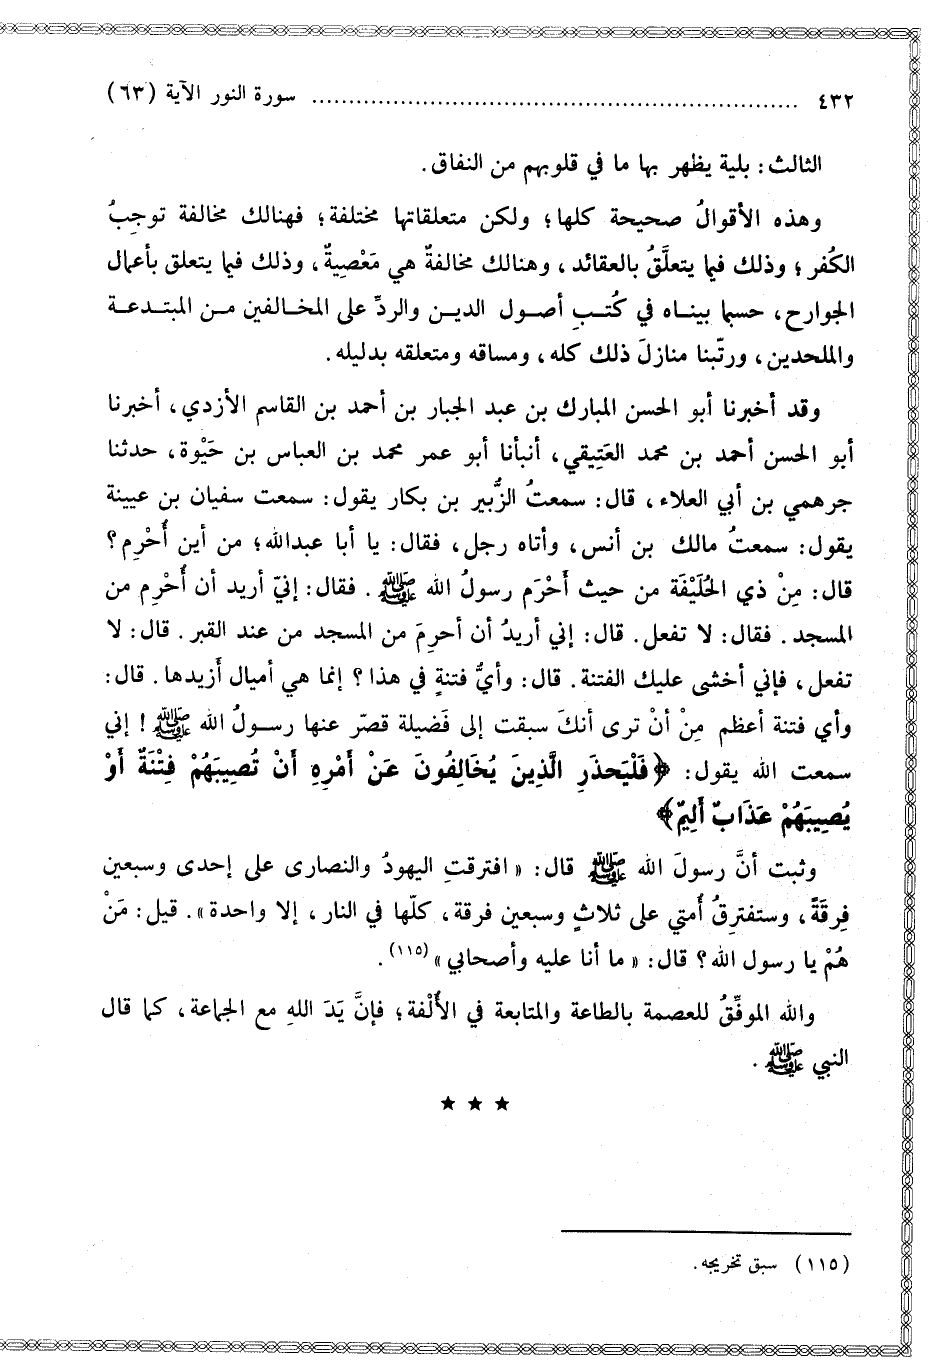 ٤٣٢ ........................................ سورة النور الآية (٦٣)
الثالث: بلية يظهر بها ما في قلوبهم من النفاق.
وهذه الأقوالُ صحيحة كلها؛ ولكن متعلقاتها مختلفة؛ فهنالك مخالفة توجِبُ
الكُفر؛ وذلك فيما يتعلَّقُ بالعقائد، وهنالك مخالفةٌ هي مَعْصِيةٌ، وذلك فيما يتعلق بأعمال
الجوارح، حسبما بيناه في كُتبِ أصول الدين والردِّ على المخالفين من المبتدعة
والملحدين، ورتّبنا منازلَ ذلك كله، ومساقه ومتعلقه بدليله.
وقد أخبرنا أبو الحسن المبارك بن عبد الجبار بن أحمد بن القاسم الأزدي، أخبرنا
أبو الحسن أحمد بن محمد العَتِيقي، أنبأنا أبو عمر محمد بن العباس بن حَيْوة، حدثنا
جرهمي بن أبي العلاء، قال: سمعتُ الزُّبير بن بكار يقول: سمعت سفيان بن عيينة
يقول: سمعتُ مالك بن أنس، وأتاه رجل، فقال: يا أبا عبدالله؛ من أين أُحْرِم؟
قال: مِنْ ذي الحُلَيْفَة من حيث أَحْرَم رسولُ الله ﷺ. فقال: إنيّ أريد أن أُحْرِم من
المسجد. فقال: لا تفعل. قال: إني أريدُ أن أحرِمَ من المسجد من عند القبر. قال: لا
تفعل، فإني أخشى عليك الفتنة. قال: وأيُّ فتنةٍ في هذا؟ إنما هي أميال أَزيدها. قال:
وأي فتنة أعظم مِنْ أنْ ترى أنكَ سبقت إلى فَضيلة قصّر عنها رسولُ الله ﷺ! إني
سمعت الله يقول: ﴿فَلْيَحذَرِ الَّذِينَ يُخَالِفُونَ عَنْ أَمْرِهِ أَنْ تُصِيبَهُمْ فِتْنَةٌ أَوْ
يُصِيبَهُمْ عَذَابٌ أَلِيمٌ﴾
وثبت أنَّ رسولَ الله ﷺ قال: «افترقتِ اليهودُ والنصارى على إحدى وسبعين
فِرقَةً، وستفترِقُ أُمتي على ثلاثٍ وسبعين فرقة، كلّها في النار، إلا واحدة». قيل: مَنْ
هُمْ يا رسول الله؟ قال: «ما أنا عليه وأصحابي»(١١٥).
والله الموفِّقُ للعصمة بالطاعة والمتابعة في الأُلْفة؛ فإنَّ يَدَ اللهِ مع الجماعة، كما قال
النبي ﷺ.
★ ★ ★
(١١٥) سبق تخريجه.